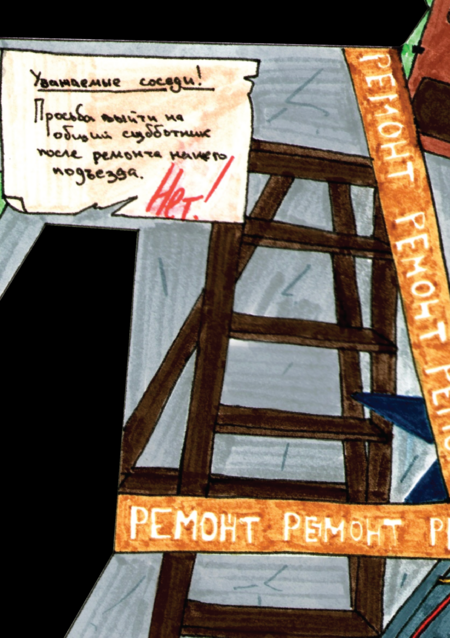 Уважаемые соседи!
Просьба выйти на
общий субботник
после ремонта нашего
подъезда.
Нет!
РЕМОНТ РЕМОНТ РЕМО
РЕМОНТ РЕМОНТ Р